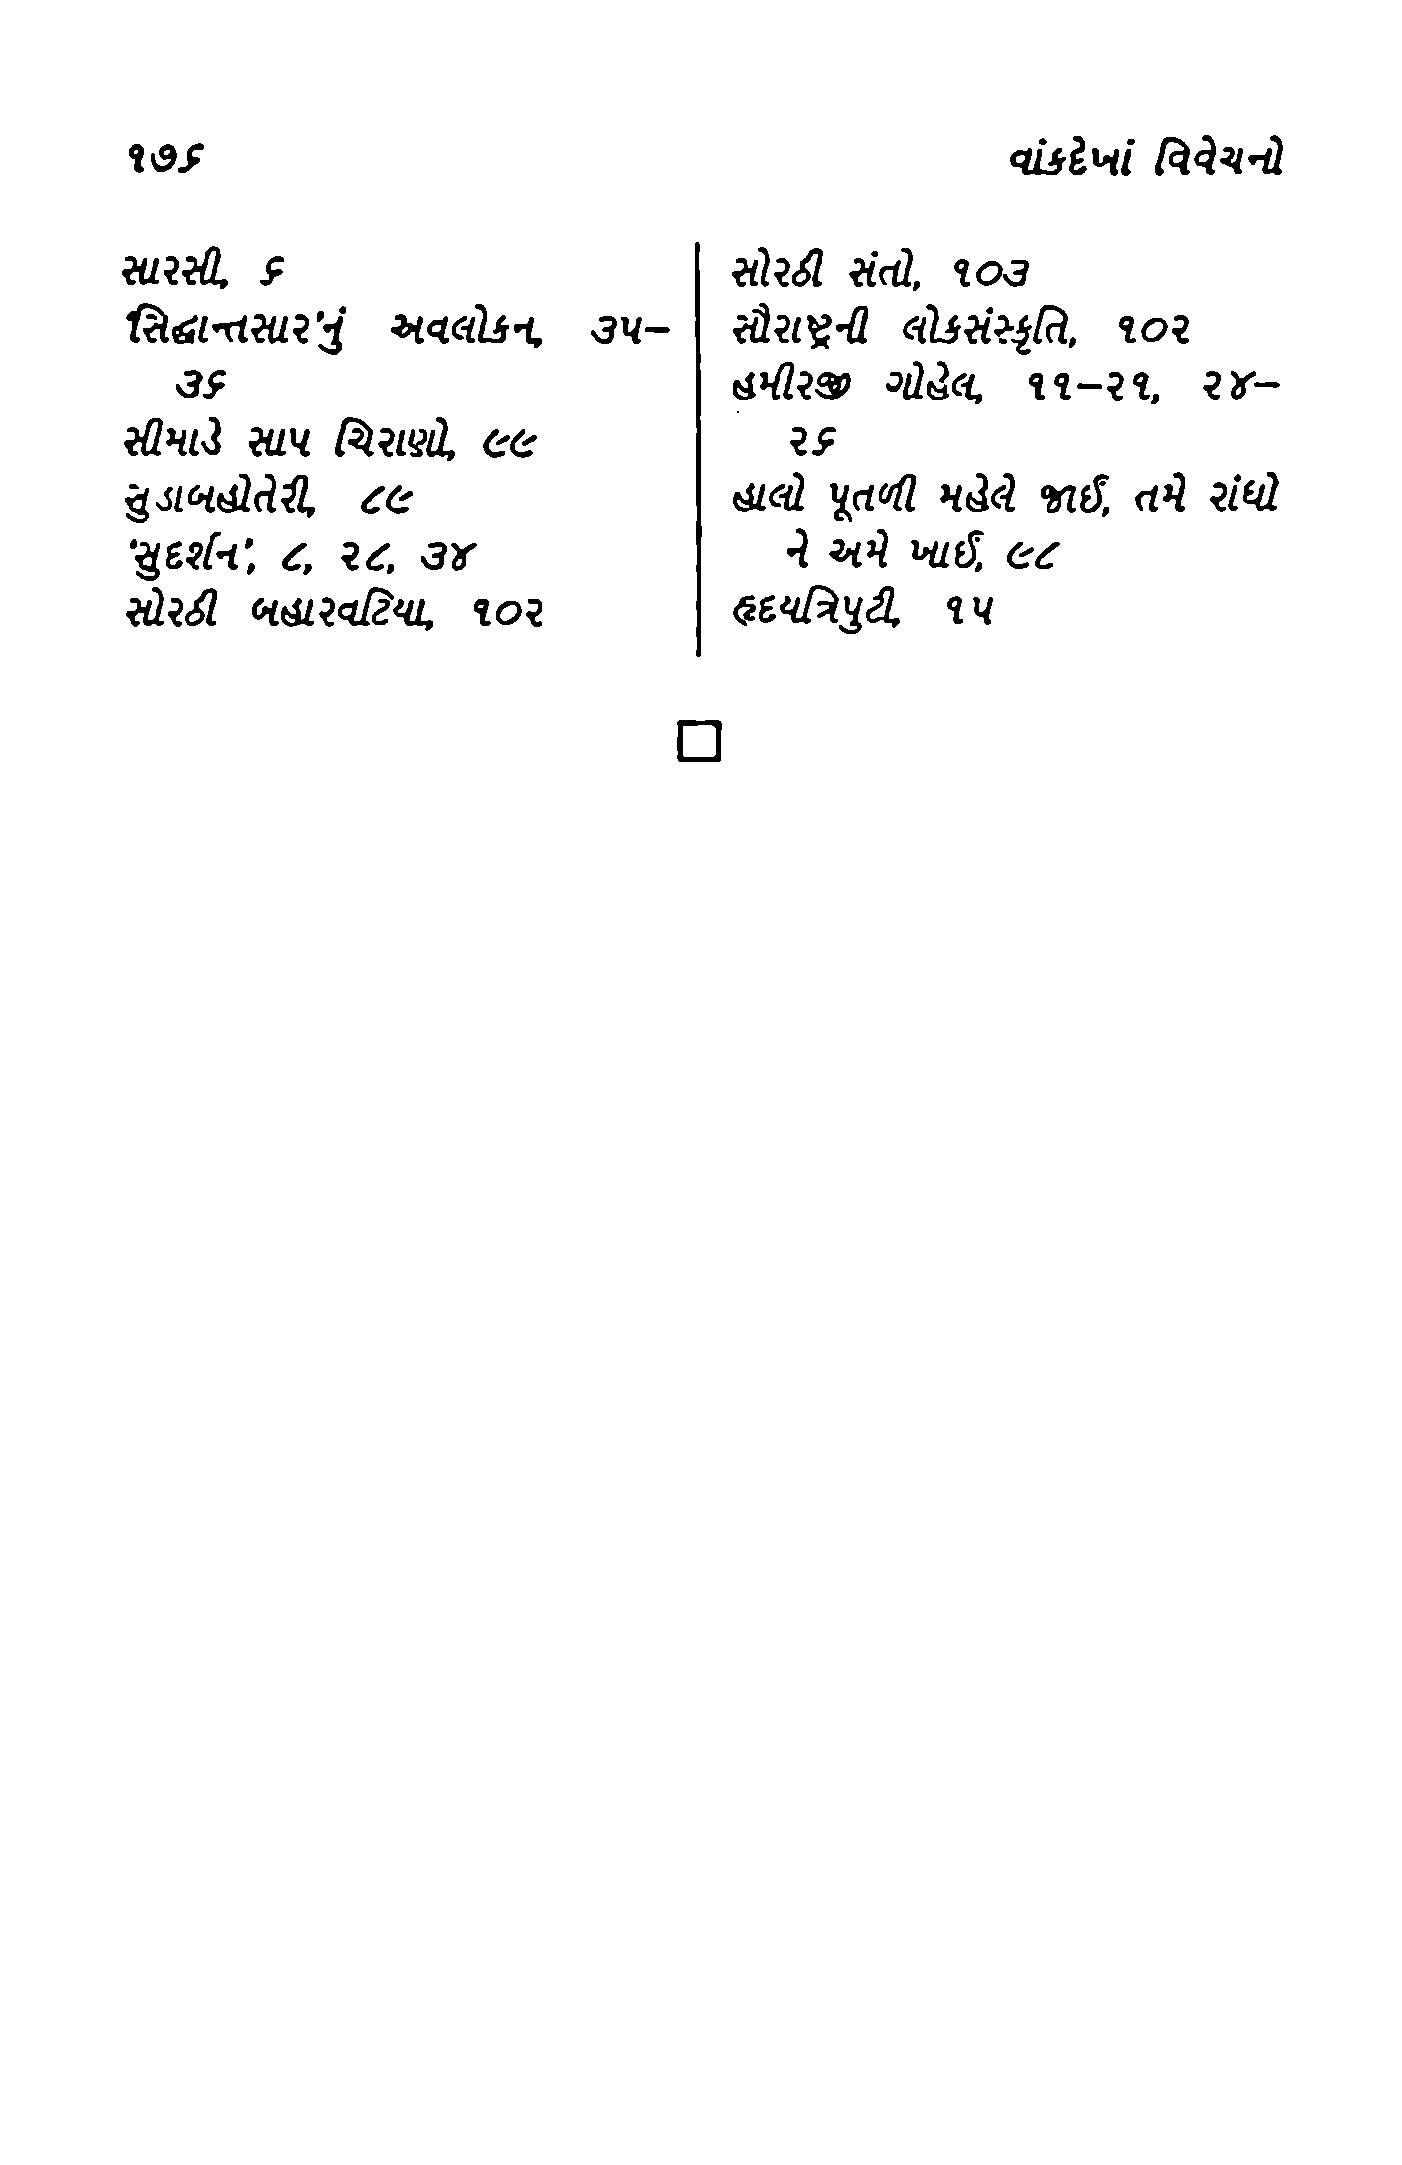 ૧૭૬ વાંકદેખાં વિવેચનો
સારસી, ૬
'સિદ્ધાન્તસાર'નું અવલોકન, ૩૫–
૩૬
સીમાડે સાપ ચિરાણો, ૯૯
સુડાબહોતેરી, ૮૯
'સુદર્શન', ૮, ૨૮, ૩૪
સોરઠી બહારવટિયા, ૧૦૨
સોરઠી સંતો, ૧૦૩
સૌરાષ્ટ્રની લોકસંસ્કૃતિ, ૧૦૨
હમીરજી ગોહેલ, ૧૧–૨૧, ૨૪–
૨૬
હાલો પૂતળી મહેલે જાઈં, તમે રાંધો
ને અમે ખાઈં, ૯૮
હૃદયત્રિપુટી, ૧૫